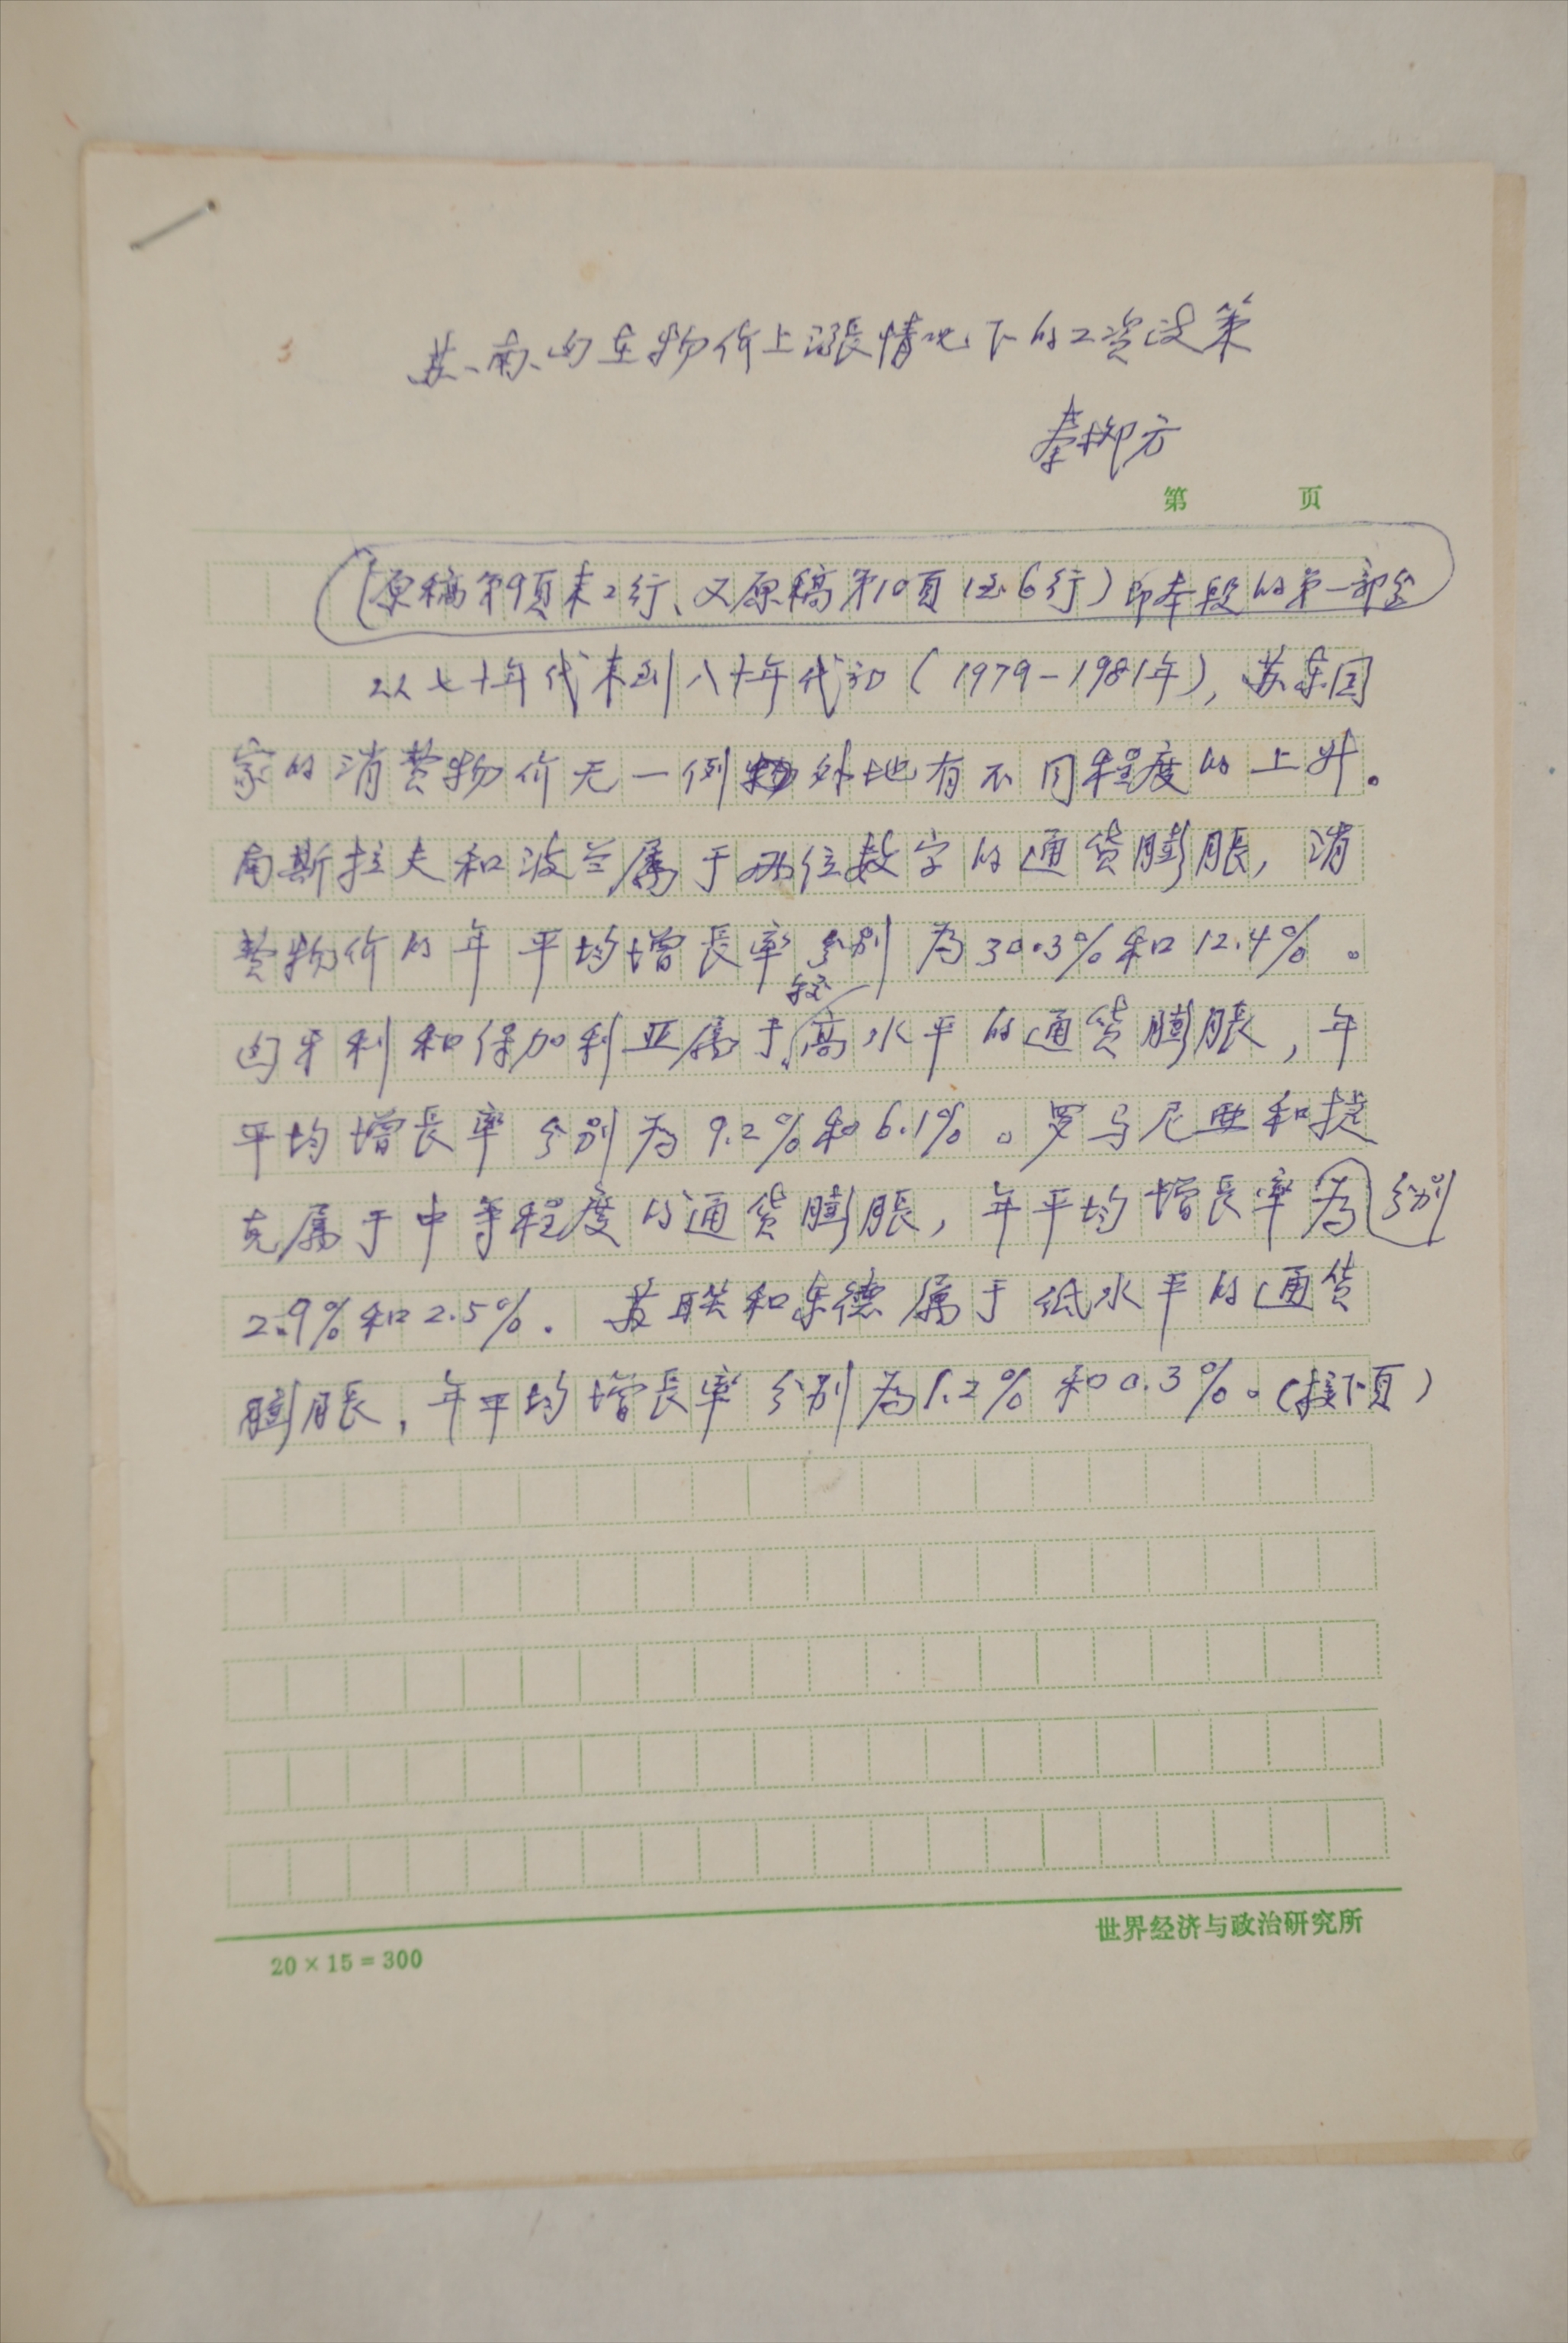 苏、南、匈在物价上涨情况下的工资政策
秦柳方
第 页
(原稿第9頁末2行、又原稿第10頁1至6行)即本段的第一部分
从七十年代末到八十年代初(1979-1981年),苏东国
家的消费物价无一例外地有不同程度的上升。
南斯拉夫和波兰属于两位数字的通货膨胀,消
费物价的年平均增長率分别为30.3%和12.4%。
匈牙利和保加利亚属于较高水平的通货膨胀,年
平均增長率分别为9.2%和6.1%。罗马尼亚和捷
克属于中等程度的通货膨胀,年平均增長率分别为
2.9%和2.5%。苏联和东德属于低水平的通货
膨胀,年平均增長率分别为1.2%和0.3%。(接下頁)
世界经济与政治研究所
20×15=300